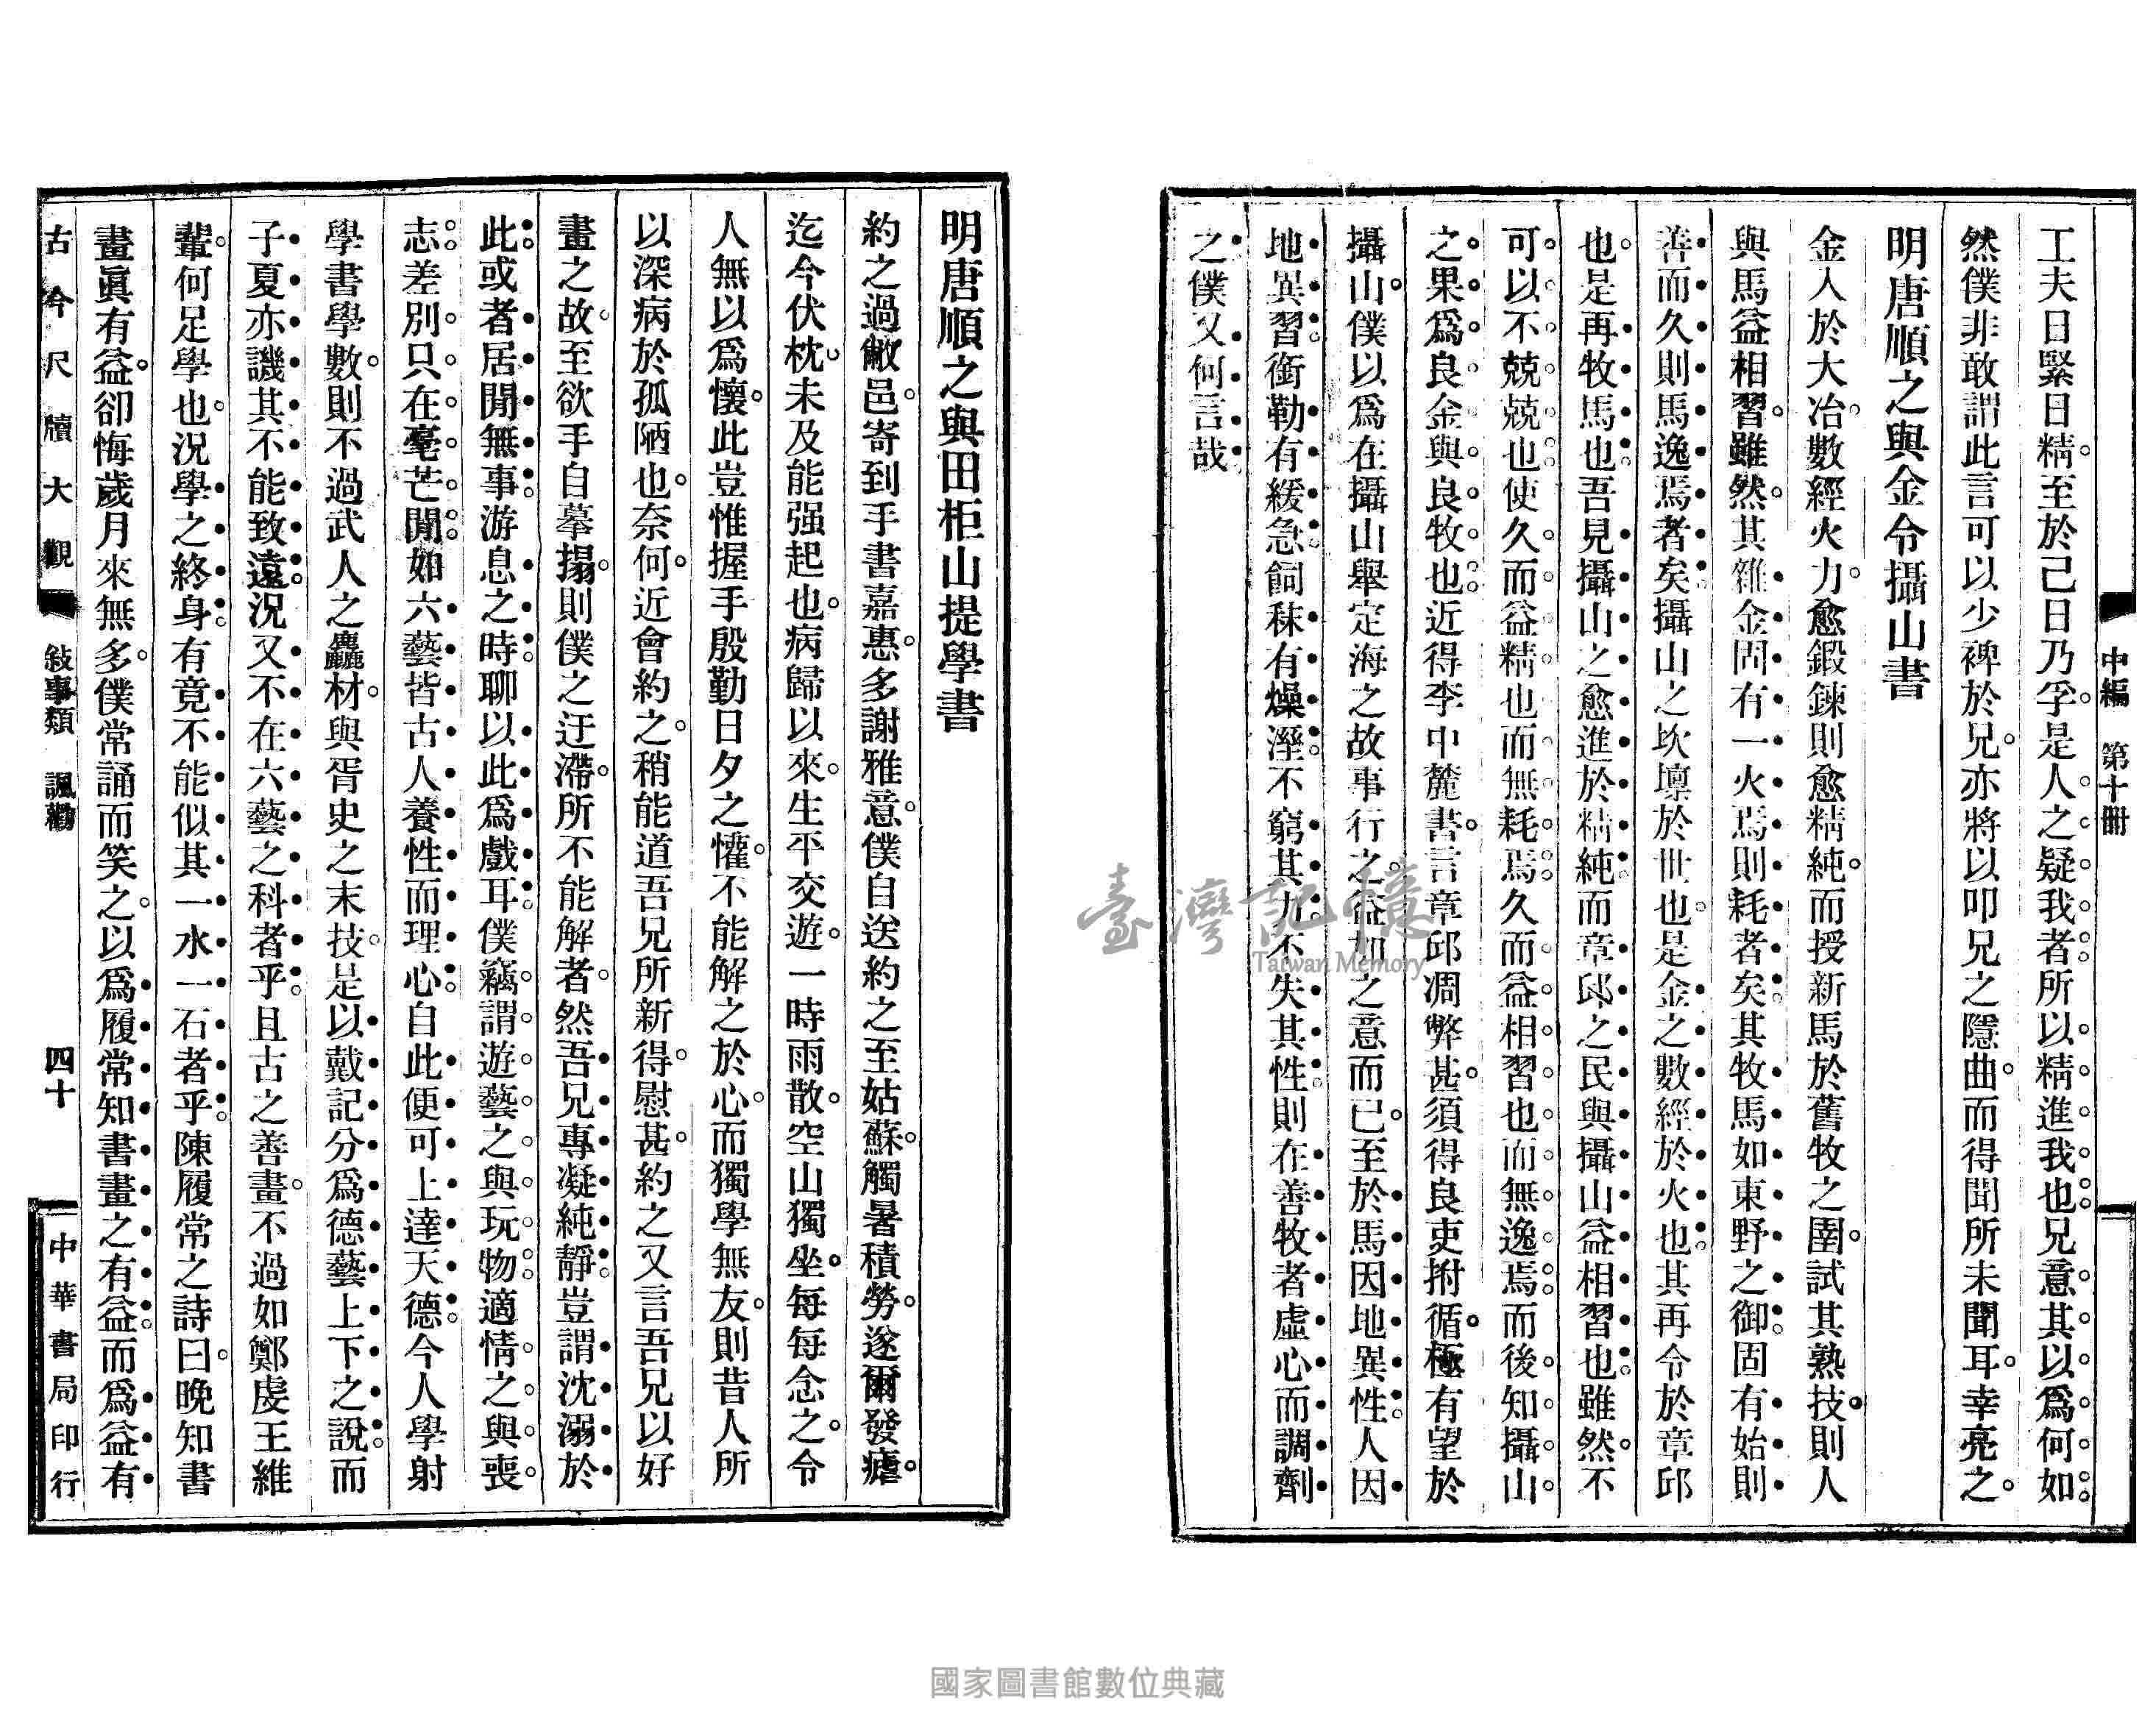 中編　第十冊
工夫日緊日精至於己日乃孚是人之疑我者所以精進我也兄意其以爲何如
然僕非敢謂此言可以少裨於兄亦將以叩兄之隱曲而得聞所未聞耳幸亮之
明唐順之與金令攝山書
金入於大冶數經火力愈鍛鍊則愈精純而授新馬於舊牧之圉試其熟技則人
與馬益相習雖然其雜金固有一火焉則耗者矣其牧馬如東野之御固有始則
善而久則馬逸焉者矣攝山之坎壈於世也是金之數經於火也其再令於章邱
也是再牧馬也吾見攝山之愈進於精純而章邱之民與攝山益相習也雖然不
可以不兢兢也使久而益精也而無耗焉久而益相習也而無逸焉而後知攝山
之果爲良金與良牧也近得李中麓書言章邱凋弊甚須得良吏拊循極有望於
攝山僕以爲在攝山舉定海之故事行之益加之意而已至於馬因地異性人因
地異習銜勒有緩急飼秣有燥溼不窮其力不失其性則在善牧者虛心而調劑
之僕又何言哉
明唐順之與田柜山提學書
約之過敝邑寄到手書嘉惠多謝雅意僕自送約之至姑蘇觸暑積勞遂爾發瘧
迄今伏枕未及能强起也病歸以來生平交遊一時雨散空山獨坐每每念之令
人無以爲懷此豈惟握手殷勤日夕之懽不能解之於心而獨學無友則昔人所
以深病於孤陋也奈何近會約之稍能道吾兄所新得慰甚約之又言吾兄以好
畫之故至欲手自摹搨則僕之迂滯所不能解者然吾兄專凝純靜豈謂沈溺於
此或者居閒無事游息之時聊以此爲戲耳僕竊謂遊藝之與玩物適情之與喪
志差別只在毫芒閒如六藝皆古人養性而理心自此便可上達天德今人學射
學書學數則不過武人之麤材與胥史之末技是以戴記分爲德藝上下之說而
子夏亦譏其不能致遠況又不在六藝之科者乎且古之善畫不過如鄭虔王維
輩何足學也況學之終身有竟不能似其一水一石者乎陳履常之詩曰晚知書
畫眞有益卻悔歲月來無多僕常誦而笑之以爲履常知書畫之有益而爲益有
古今尺牘大觀　敍事類　諷勸　四十　中華書局印行
臺灣記憶
Taiwan Memory
國家圖書館數位典藏